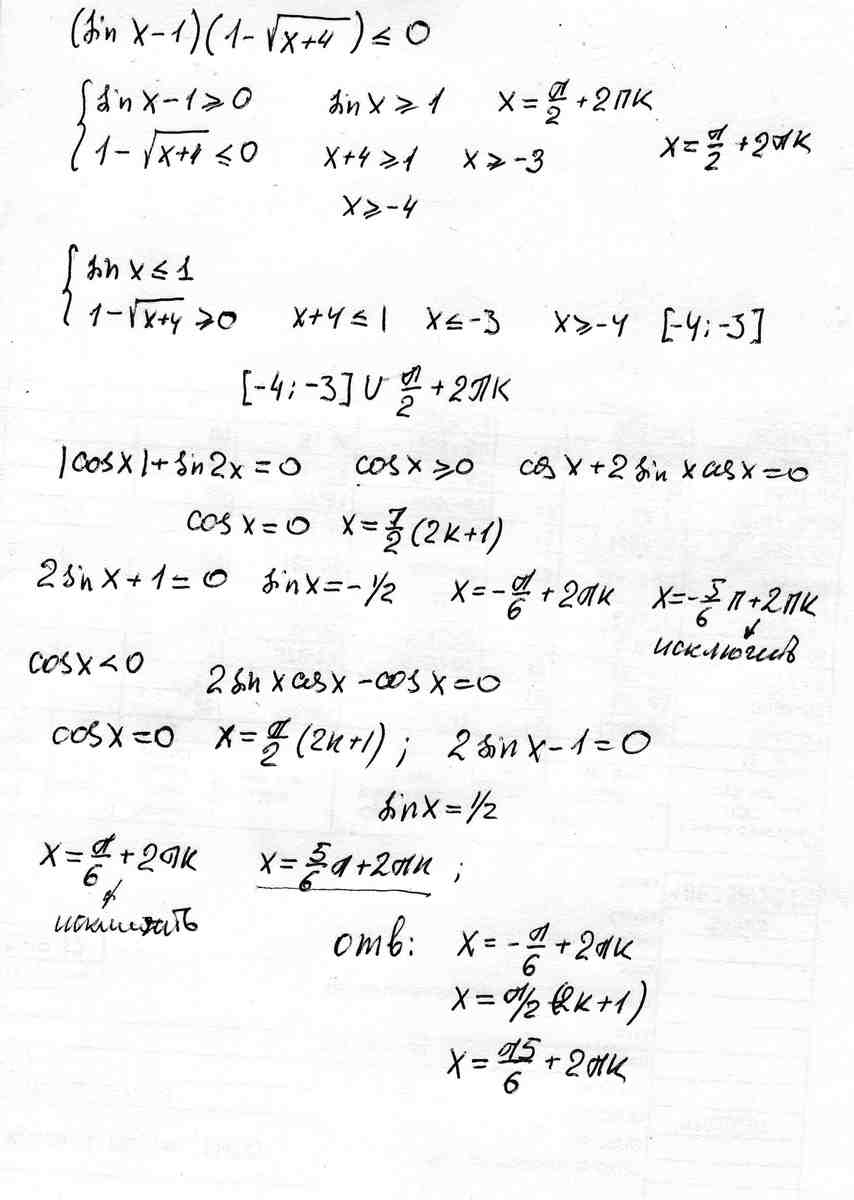 (sin x-1)(1-√(x+4)) ≤ 0
{ sin x-1 ≥ 0   sin x ≥ 1   x = π/2 + 2πk
1-√(x+4) ≤ 0   x+4 ≥ 1   x ≥ -3   x = π/2 + 2πk
x ≥ -4
{ sin x ≤ 1
1-√(x+4) ≥ 0   x+4 ≤ 1   x ≤ -3   x ≥ -4   [-4; -3]
[-4; -3] ∪ π/2 + 2πk
|cos x| + sin 2x = 0   cos x ≥ 0   cos x + 2 sin x cos x = 0
cos x = 0   x = π/2 (2k+1)
2 sin x + 1 = 0   sin x = -1/2   x = -π/6 + 2πk   x = -5/6 π + 2πk
исключить
cos x < 0   2 sin x cos x - cos x = 0
cos x = 0   x = π/2 (2k+1) ;   2 sin x - 1 = 0
sin x = 1/2
x = π/6 + 2πk   x = 5/6 π + 2πk ;
исключить
отв: x = -π/6 + 2πk
x = π/2 (2k+1)
x = π5/6 + 2πk